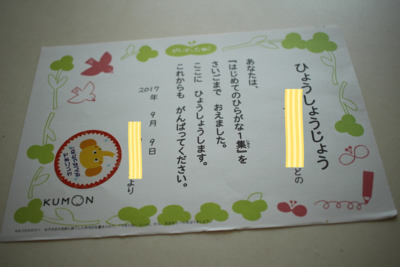 がんばったね!
ひょうしょうじょう
どの
あなたは、
『はじめてのひらがな1集』を
さいごまで おえました。
ここに ひょうしょうします。
これからも がんばってください。
2017年 9月 9日
より
KUMON